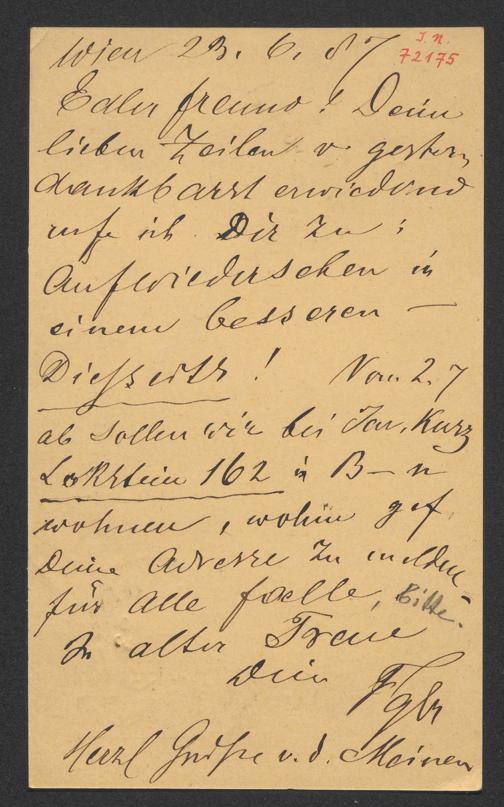 Wien 23. 6. 87
J. N.
72175
Edler Freund! Deine
lieben Zeilen v. gestern
dankbarst erwiedernd
rufe ich Dir zu:
Aufwiedersehen in
einem besseren –
Dießseits! Vom 2. 7
ab sollen wir bei Jar. Kurz
162 in B–n
wohnen, wohin gef
Deine Adresse zu melden
für alle Fælle, Bitte.
In alter Treue
Dein
Herzl Grüße v. d. Meinen